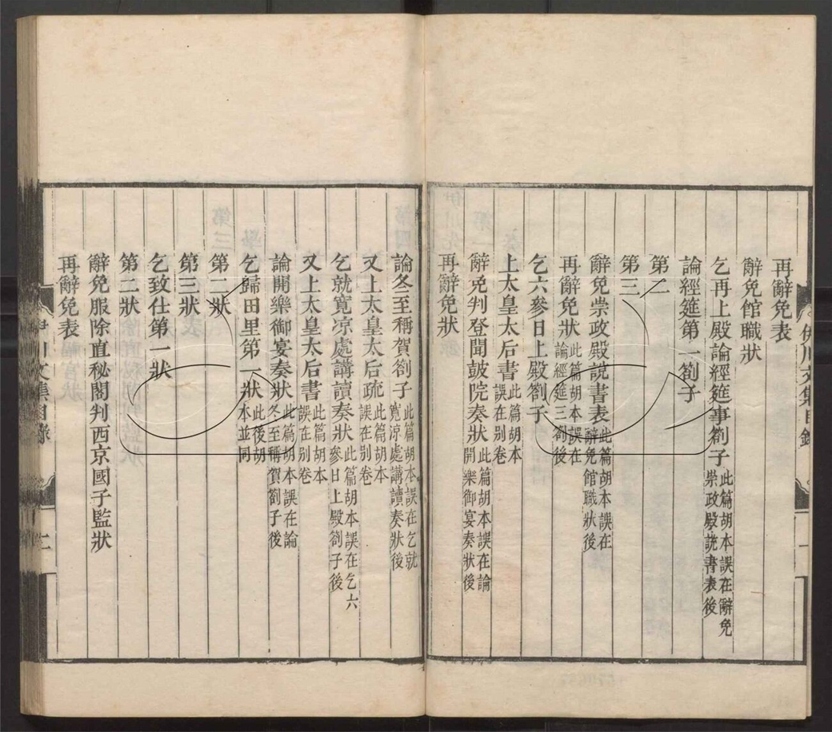 再辭免表
辭免館職狀
乞再上殿論經筵事劄子此篇胡本誤在辭免崇政殿說書表後
論經筵第一劄子
第二
第三
辭免崇政殿說書表此篇胡本誤在辭免館職狀後
再辭免狀此篇胡本誤在論經筵三劄後
乞六參日上殿劄子
上太皇太后書此篇胡本誤在別卷
辭免判登聞鼓院奏狀此篇胡本誤在論開樂御宴奏狀後
再辭免狀
論冬至稱賀劄子此篇胡本誤在乞就寬凉處講讀奏狀後
又上太皇太后疏此篇胡本誤在別卷
乞就寬凉處講讀奏狀此篇胡本誤在乞六參日上殿劄子後
又上太皇太后書此篇胡本誤在別卷
論開樂御宴奏狀此篇胡本誤在論冬至稱賀劄子後
乞歸田里第一狀此後胡本並同
第二狀
第三狀
乞致仕第一狀
第二狀
辭免服除直秘閣判西京國子監狀
再辭免表
伊川文集目錄
二